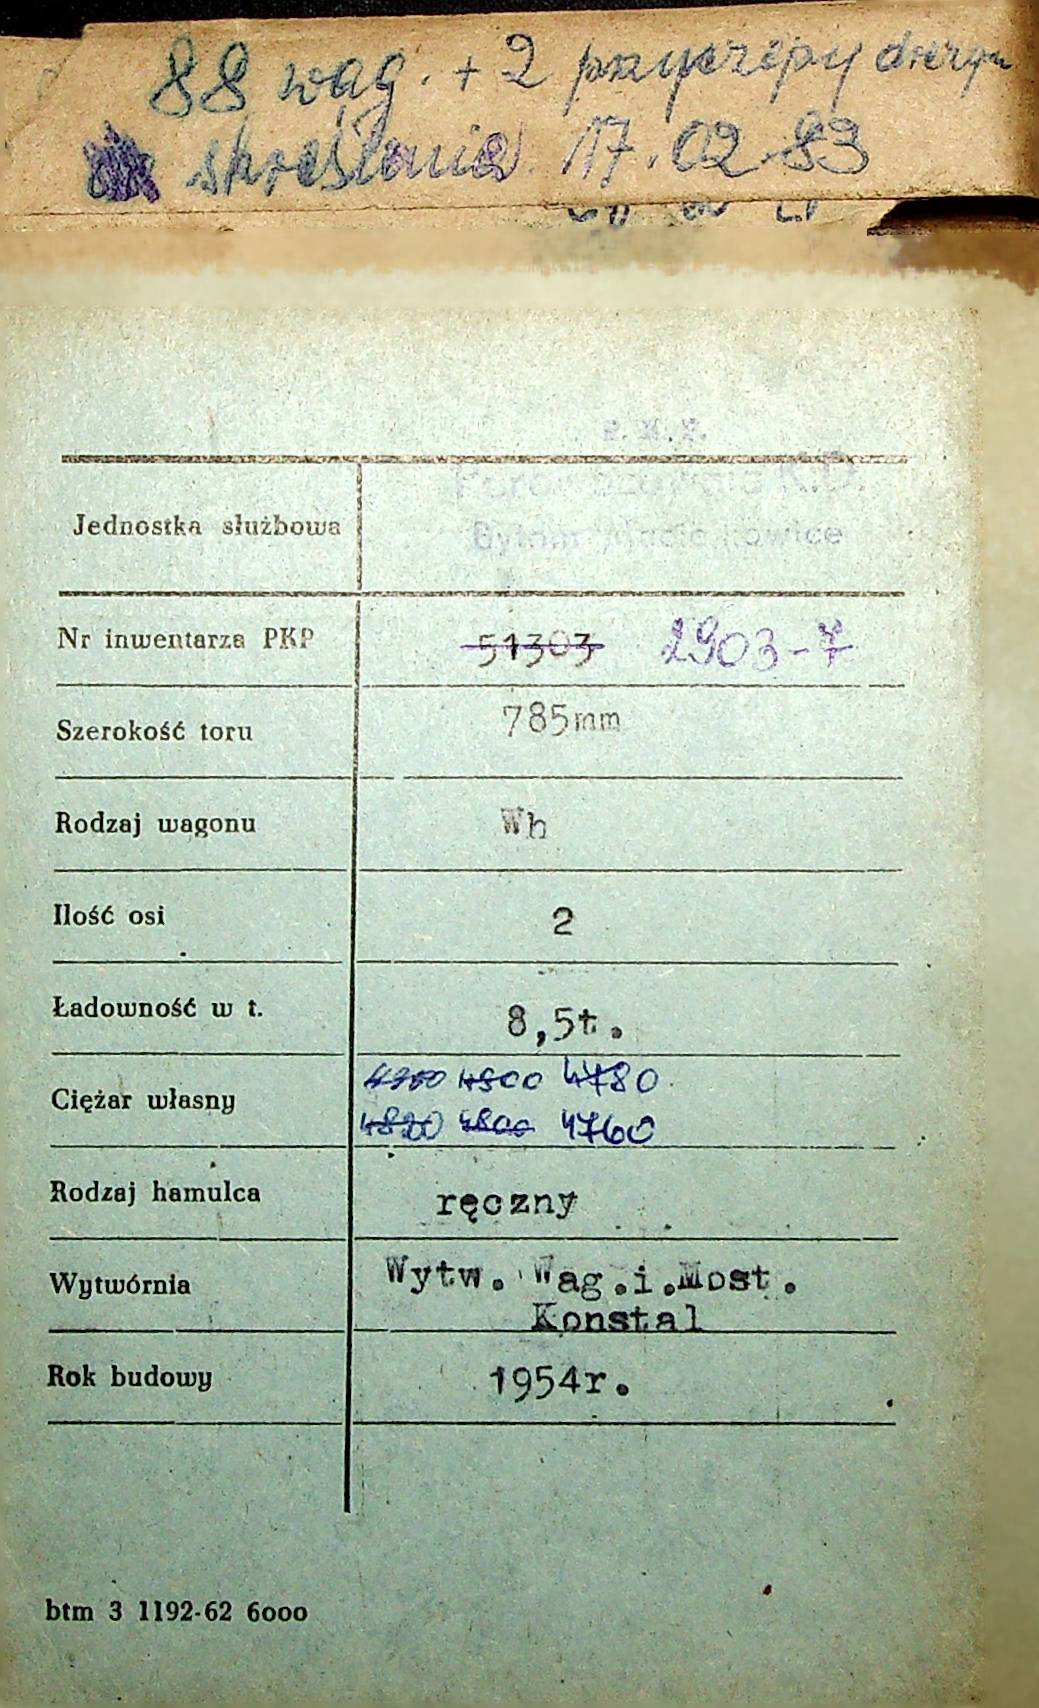 88 wag. + 2 przyczepy drezyn
skreślenie 17.02.83
P.K.P.
Parowozownia K.D.
Bytom Maciejkowice
Jednostka służbowa
Nr inwentarza PKP 51303 2903-7
Szerokość toru 785mm
Rodzaj wagonu Wh
Ilość osi 2
Ładowność w t. 8,5t.
4800 4780
Ciężar własny
4820 4800 4760
Rodzaj hamulca ręczny
Wytwórnia Wytw. Wag.i.Most.
Konstal
Rok budowy 1954r.
btm 3 1192-62 6000